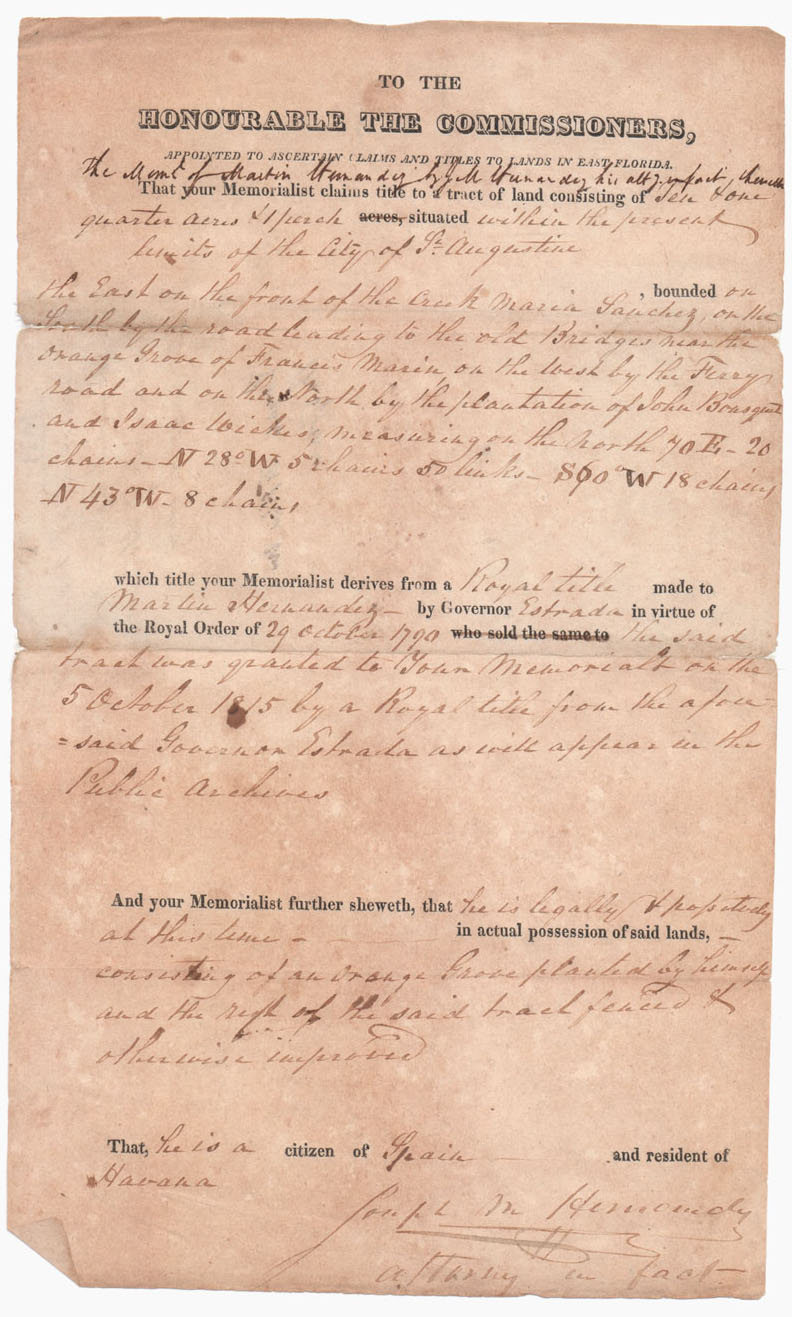 TO THE
HONOURABLE THE COMMISSIONERS,
APPOINTED TO ASCERTAIN CLAIMS AND TITLES TO LANDS IN EAST FLORIDA.
The Meml. of Martin Hernandez by J M Hernandez his atty in fact, sheweth
That your Memorialist claims title to a tract of land consisting of Ten & one
quarter acres & 1 perch acres, situated within the present
limits of the City of St. Augustine
, bounded on
the East on the front of the Creek Maria Sanchez, on the
South by the road leading to the old Bridges near the
Orange Grove of Francis Marin on the West by the Ferry
road and on the North by the plantation of John Bousquet
and Isaac Wickes, measuring on the North 70 E - 20
chains - N 28° W 5 chains 50 links - S60° W 18 chains
N 43° W - 8 chains
which title your Memorialist derives from a Royal title made to
Martin Hernandez - by Governor Estrada in virtue of
the Royal Order of 29 October 1790 who sold the same to the said
tract was granted to Your Memorialt on the
5 October 1815 by a Royal title from the afore-
=said Governor Estrada as will appear in the
Public Archives
And your Memorialist further sheweth, that he is legally &
at this time - in actual possession of said lands, -
consisting of an Orange Grove planted by himself
and the rest of the said tract fenced &
otherwise improved
That, he is a citizen of Spain and resident of
Havana
Joseph M Hernandez
attorny in fact